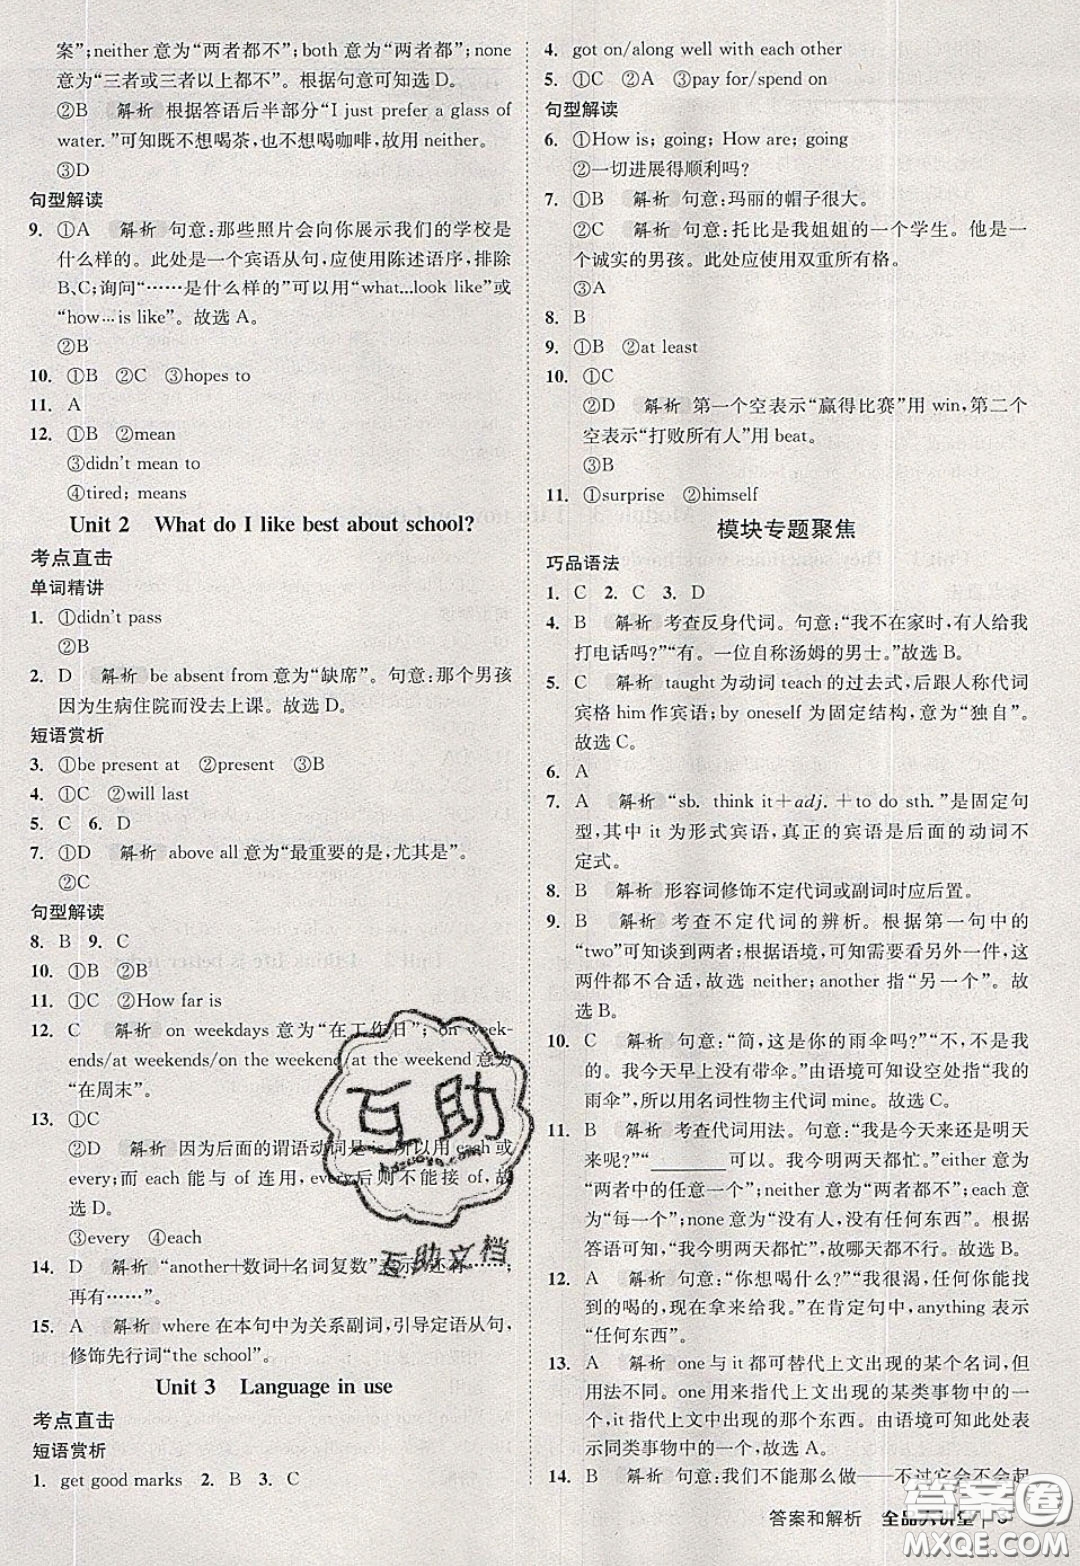 案”；neither 意为“两者都不”；both 意为“两者都”；none
意为“三者或三者以上都不”。根据句意可知选 D。
②B 解析 根据答语后半部分“I just prefer a glass of
water.”可知既不想喝茶，也不想喝咖啡，故用 neither。
③D
句型解读
9. ①A 解析 句意：那些照片会向你展示我们的学校是
什么样的。此处是一个宾语从句，应使用陈述语序，排除
B、C；询问“……是什么样的”可以用“what...look like”或
“how…is like”。故选 A。
②B
10. ①B ②C ③hopes to
11. A
12. ①B ②mean
③didn't mean to
④tired; means
Unit 2 What do I like best about school?
考点直击
单词精讲
1. ①didn't pass
②B
2. D 解析 be absent from 意为“缺席”。句意：那个男孩
因为生病住院而没去上课。故选 D。
短语赏析
3. ①be present at ②present ③B
4. ①C ②will last
5. C 6. D
7. ①D 解析 above all 意为“最重要的是，尤其是”。
②C
句型解读
8. B 9. C
10. ①B ②B
11. ①C ②How far is
12. C 解析 on weekdays 意为“在工作日”；on week-
ends/at weekends/on the weekend/at the weekend 意为
“在周末”。
13. ①C
②D 解析 因为后面的谓语动词是 is，所以用 each 或
every；而 each 能与 of 连用，every 后则不能接 of，故
选 D。
③every ④each
14. D 解析 “another+数词+名词复数”表示“还有……；
再有……”。
15. A 解析 where 在本句中为关系副词，引导定语从句，
修饰先行词“the school”。
Unit 3 Language in use
考点直击
短语赏析
1. get good marks 2. B 3. C
4. got on/along well with each other
5. ①C ②A ③pay for/spend on
句型解读
6. ①How is; going; How are; going
②一切进展得顺利吗？
7. ①B 解析 句意：玛丽的帽子很大。
②C 解析 句意：托比是我姐姐的一个学生。他是一
个诚实的男孩。此处应使用双重所有格。
③A
8. B
9. ①B ②at least
10. ①C
②D 解析 第一个空表示“赢得比赛”用 win，第二个
空表示“打败所有人”用 beat。
③B
11. ①surprise ②himself
模块专题聚焦
巧品语法
1. C 2. C 3. D
4. B 解析 考查反身代词。句意：“我不在家时，有人给我
打电话吗？”“有。一位自称汤姆的男士。”故选 B。
5. C 解析 taught 为动词 teach 的过去式，后跟人称代词
宾格 him 作宾语；by oneself 为固定结构，意为“独自”。
故选 C。
6. A
7. A 解析 “sb. think it＋adj.＋to do sth.”是固定句
型，其中 it 为形式宾语，真正的宾语是后面的动词不
定式。
8. B 解析 形容词修饰不定代词或副词时应后置。
9. B 解析 考查不定代词的辨析。根据第一句中的
“two”可知谈到两者；根据语境，需要看看另外一件，这
两件都不合适，故选 neither；another 指“另一个”。故
选 B。
10. C 解析 句意：“简，这是你的雨伞吗？”“不，不是我
的。我今天早上没有带伞。”由语境可知设空处指“我的
雨伞”，所以用名词性物主代词 mine。故选 C。
11. B 解析 考查代词用法。句意：“我是今天来还是明天
来呢？”“________可以。我今明两天都忙。”either 意为
“两者中的任意一个”；neither 意为“两者都不”；each 意为
“每一个”；none 意为“没有人，没有任何东西”。根据
答语可知“我今明两天都忙”，故哪天都不行。故选 B。
12. A 解析 句意：“你想喝什么？”“我很渴，任何你能找
到的喝的，现在拿来给我。”在肯定句中，anything 表示
“任何东西”。
13. A 解析 one 与 it 都可替代上文出现的某个名词，但
用法不同。one 用来指代上文出现的某类事物中的一
个，it 指代上文中出现的那个东西。由语境可知此处表
示同类事物中的一个，故选 A。
14. B 解析 句意：我们不能那么做——不过它会不会起
答案和解析 全品大讲堂
互助
互助文档
答案卷
MXQE.COM